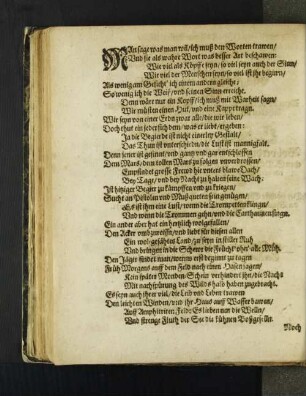 MAn sage was man wil/ ich muß den Worten trawen/
Und sie als wahre Wort was besser Art beschawen:
Wie viel als Köpffe seyn/ so viel seyn auch der Sinn/
Wie viel der Menschen seyn/ so viel ist ihr beginn/
Als wenig am Gesicht' ich einem andern gleiche;
So wenig ich die Weiß/ und seinen Sinn erreiche.
Denn wäre nur ein Kopff/ ich muß mit Warheit sagn/
Wir müsten einen Hut/ und eine Kappe tragn.
Wir seyn von einer Erd zwar alle/ die wir leben/
Doch thut ein jeder sich dem/ was er liebt/ ergeben:
In die Begierde ist nicht einerley Gestalt/
Das Thun ist unterschieden/ die Lust ist mannigfalt.
Denn jener ist gesinnt/ und gantz und gar entschlossen
Dem Mars/ dem tollen Mars zu folgen unverdrossen/
Empfindet grosse Freud ihr unters blawe Dach/
Bey Tage/ und bey Nacht zu halten seine Wach;
Ist hitziger Begier zu kämpffen und zu kriegen/
Sucht an Pistolen und Mußqueten sein gnügen/
Es ist ihm eine Lust/ wenn die Trompeten klingen/
Und wenn die Trommen gehn/ und die Carthaunen
Ein ander aber hat ein hertzlich wolgefallen/
Den Acker und
Ein wol-gesäetes Land zu seyn in stiller Ruh/
Und bringen in die Scheure die Früchte
Den Jäger findet man/ wenn erst beginnt zu tagen
Früh Morgens auff dem Feld nach einem Hasen jagen/
Kein später Monden-Schein verhindert ihn/ die Nacht
Mit nachspürung des Wilds
Es seyn auch ihrer viel/ die Leib und Leben trawen
Den leichten Winden/ und ihr Haus auff Wasser bawen/
Auff Amphitriten Felde
Und strenge Fluth der See die kühnen
Noch